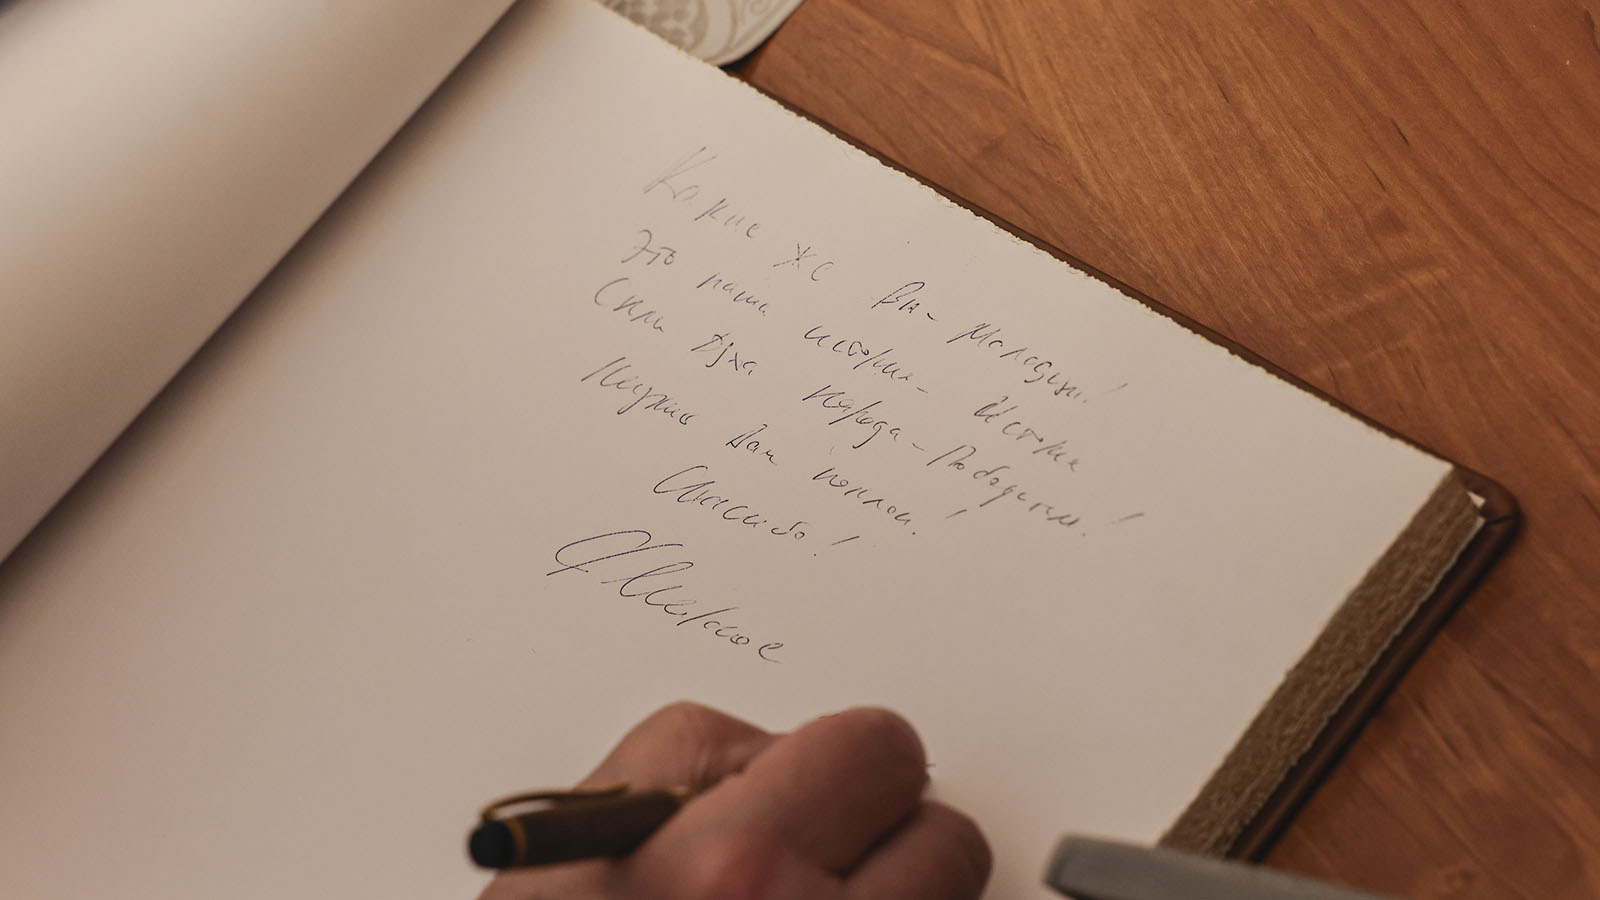 Какие же Вы - Молодцы!
Это наша история - История
Силы духа Народа - Победителя!
Низкий Вам поклон!
Спасибо!